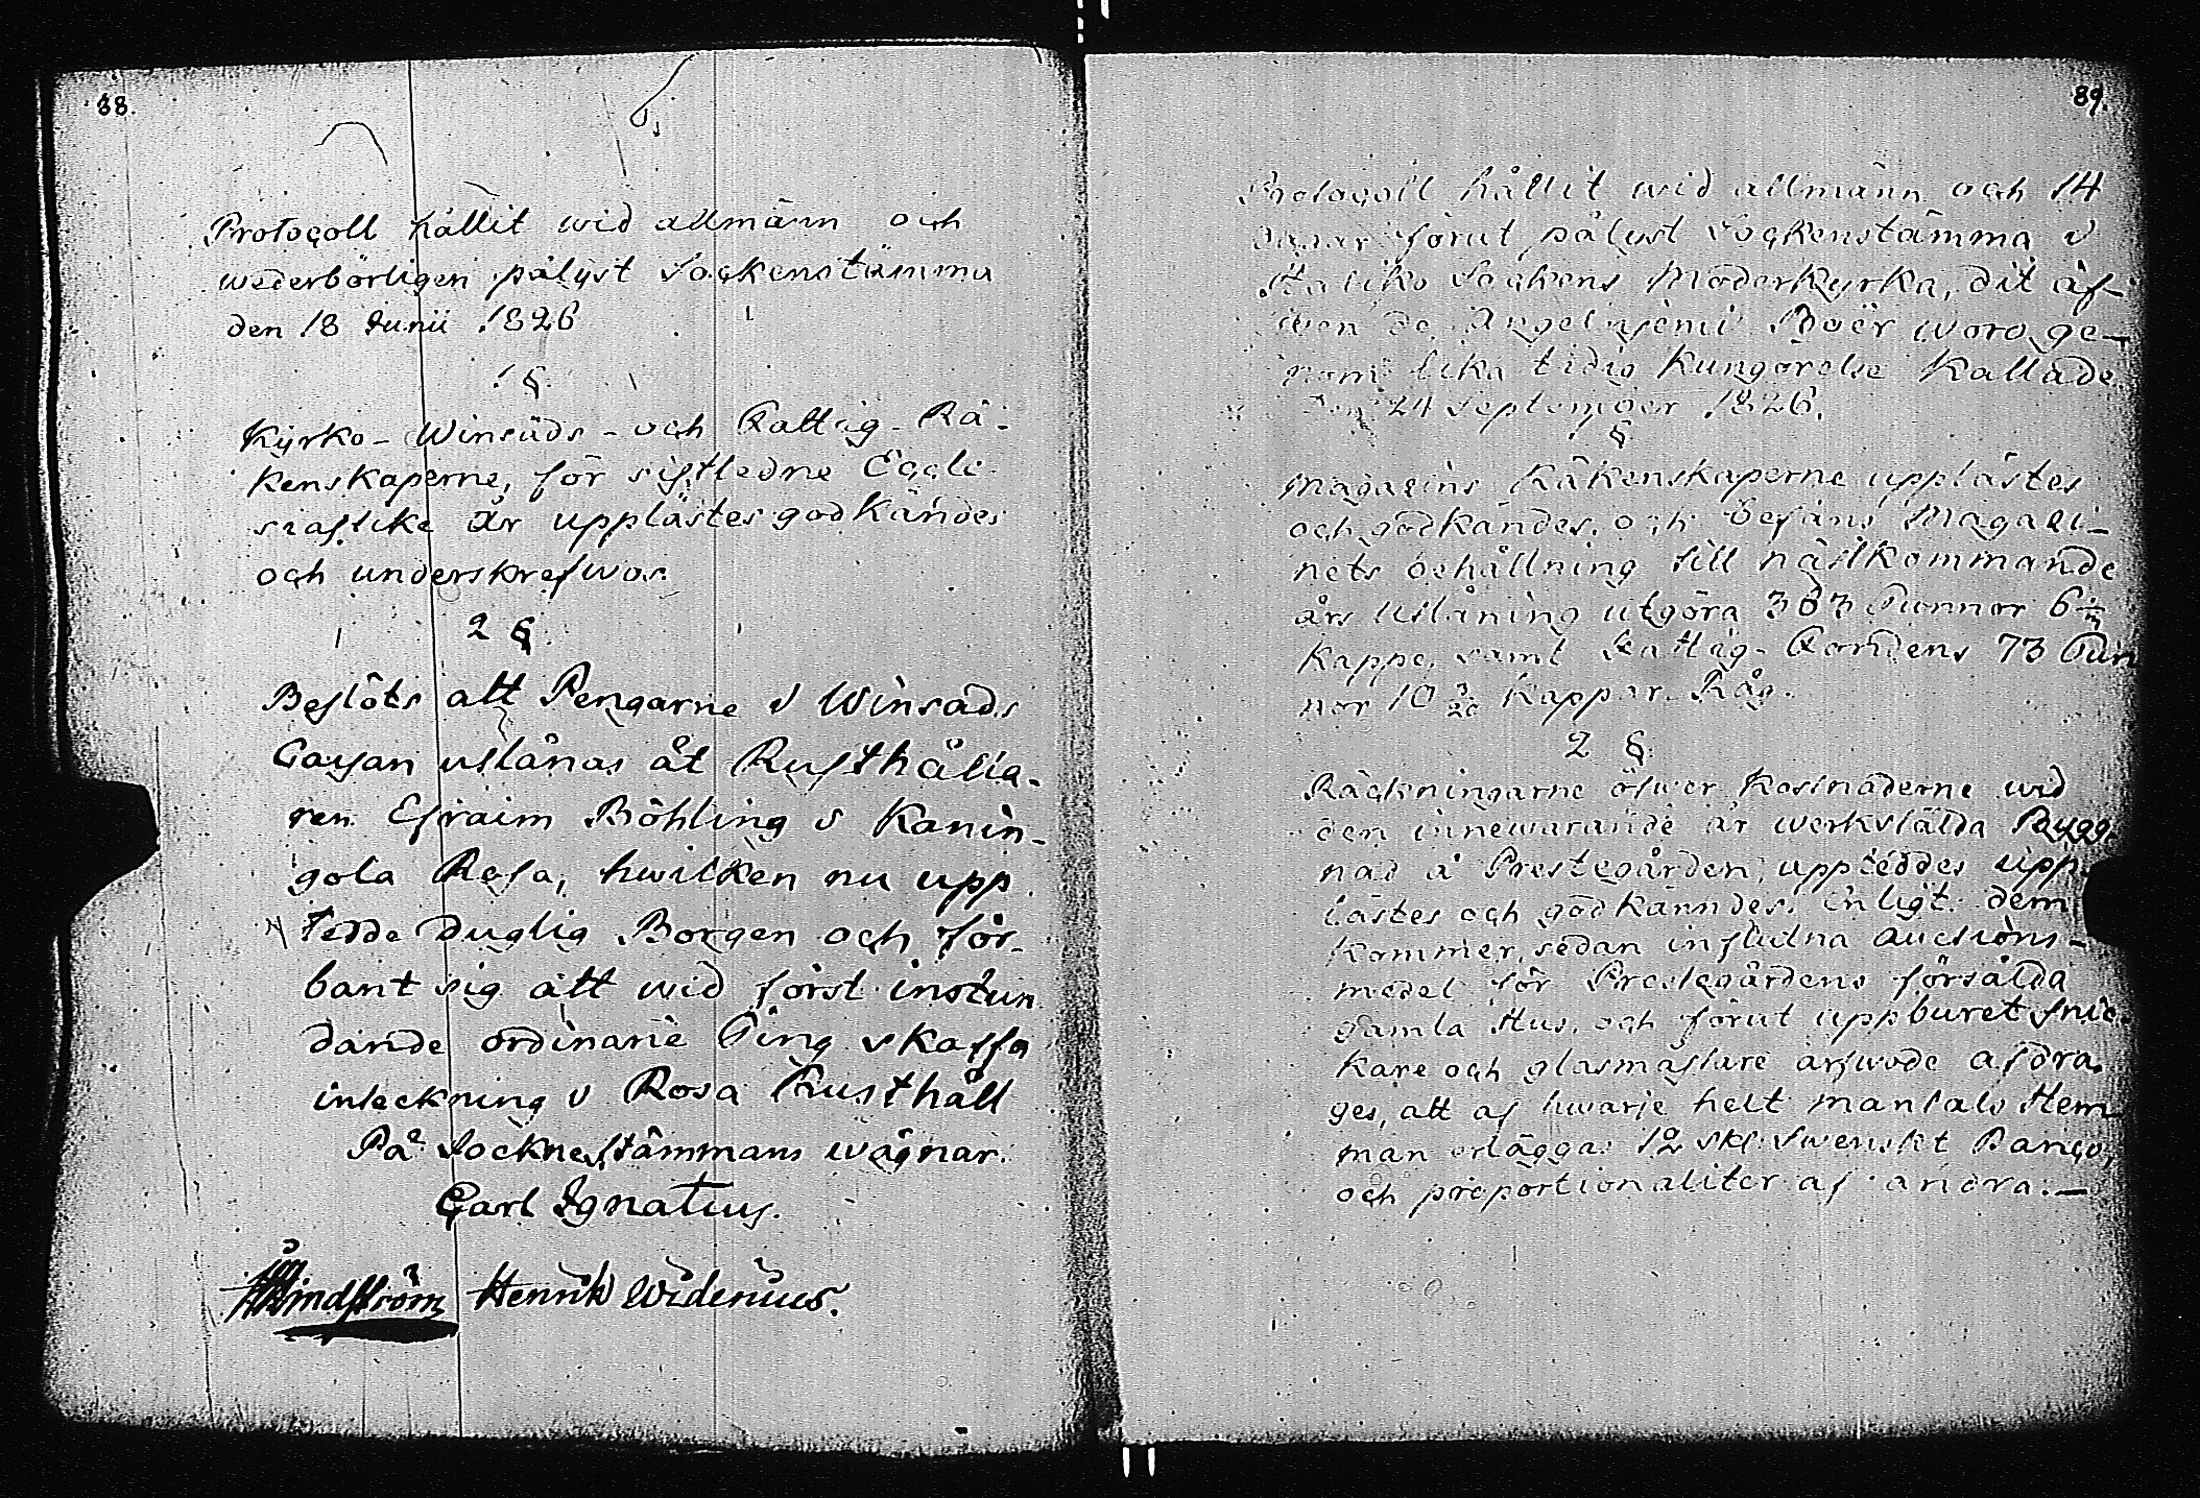 88.
Protocoll hållit wid allmän och
wederbörligen pålyst Sockenstämma
den 18 Junii 1826
1 §.
Kyrko- Winsäds- och Fattig- Rä-
kenskaperne, för sistledne Eccle
siastike År upplästes godkändes
och underskrefwos.
2 §.
Beslöts att Pengarne i Winsäds
Cassan utlånas åt Rusthålla-
ren Efraim Böhling i Kanin-
gola Rosa, hwilken nu upp
tedde duglig Borgen och för-
bant sig att wid först instun
dande ordinarie Ting skaffa
inteckning i Rosa Rusthåll
På Socknestämmans wägnar.
Carl Ignatius.
Lindström Henrik Widenius.
89.
Protocoll hållit wid allmänn och 14
dagar förut pålyst Sockenstämma i
Haliko Sockens Moderkyrka, dit äf-
wen de Angelniemi Boer woro ge-
nom lika tidig Kungörelse Kallade
den 24 September 1826.
1 §
Magasins Räkenskaperne upplästes
och godkändes, och befans Magasi-
nets behållning till nästkommande
års Utlåning utgöra 303 Tunnor 6
kappe, samt Fattig- Fondens 73 Tun
nor 10 3/20 Kappar Råg.
2 §.
Räckningarne öfwer kostnaderne wid
den innewarande år werkstälda Bygg-
nad å Prestegården, uppteddes upp-
lästes och godkänndes. Enligt dem
kommer, sedan influtna auctions-
medel för Prestegårdens försålda
gamla Hus, och förut uppburet snic-
kare och glasmästare arfwode afdra-
ges, att af hwarje helt mantals Hem-
man erlägga 12 skl. Swenskt Banco,
och proportionaliter af andra.—